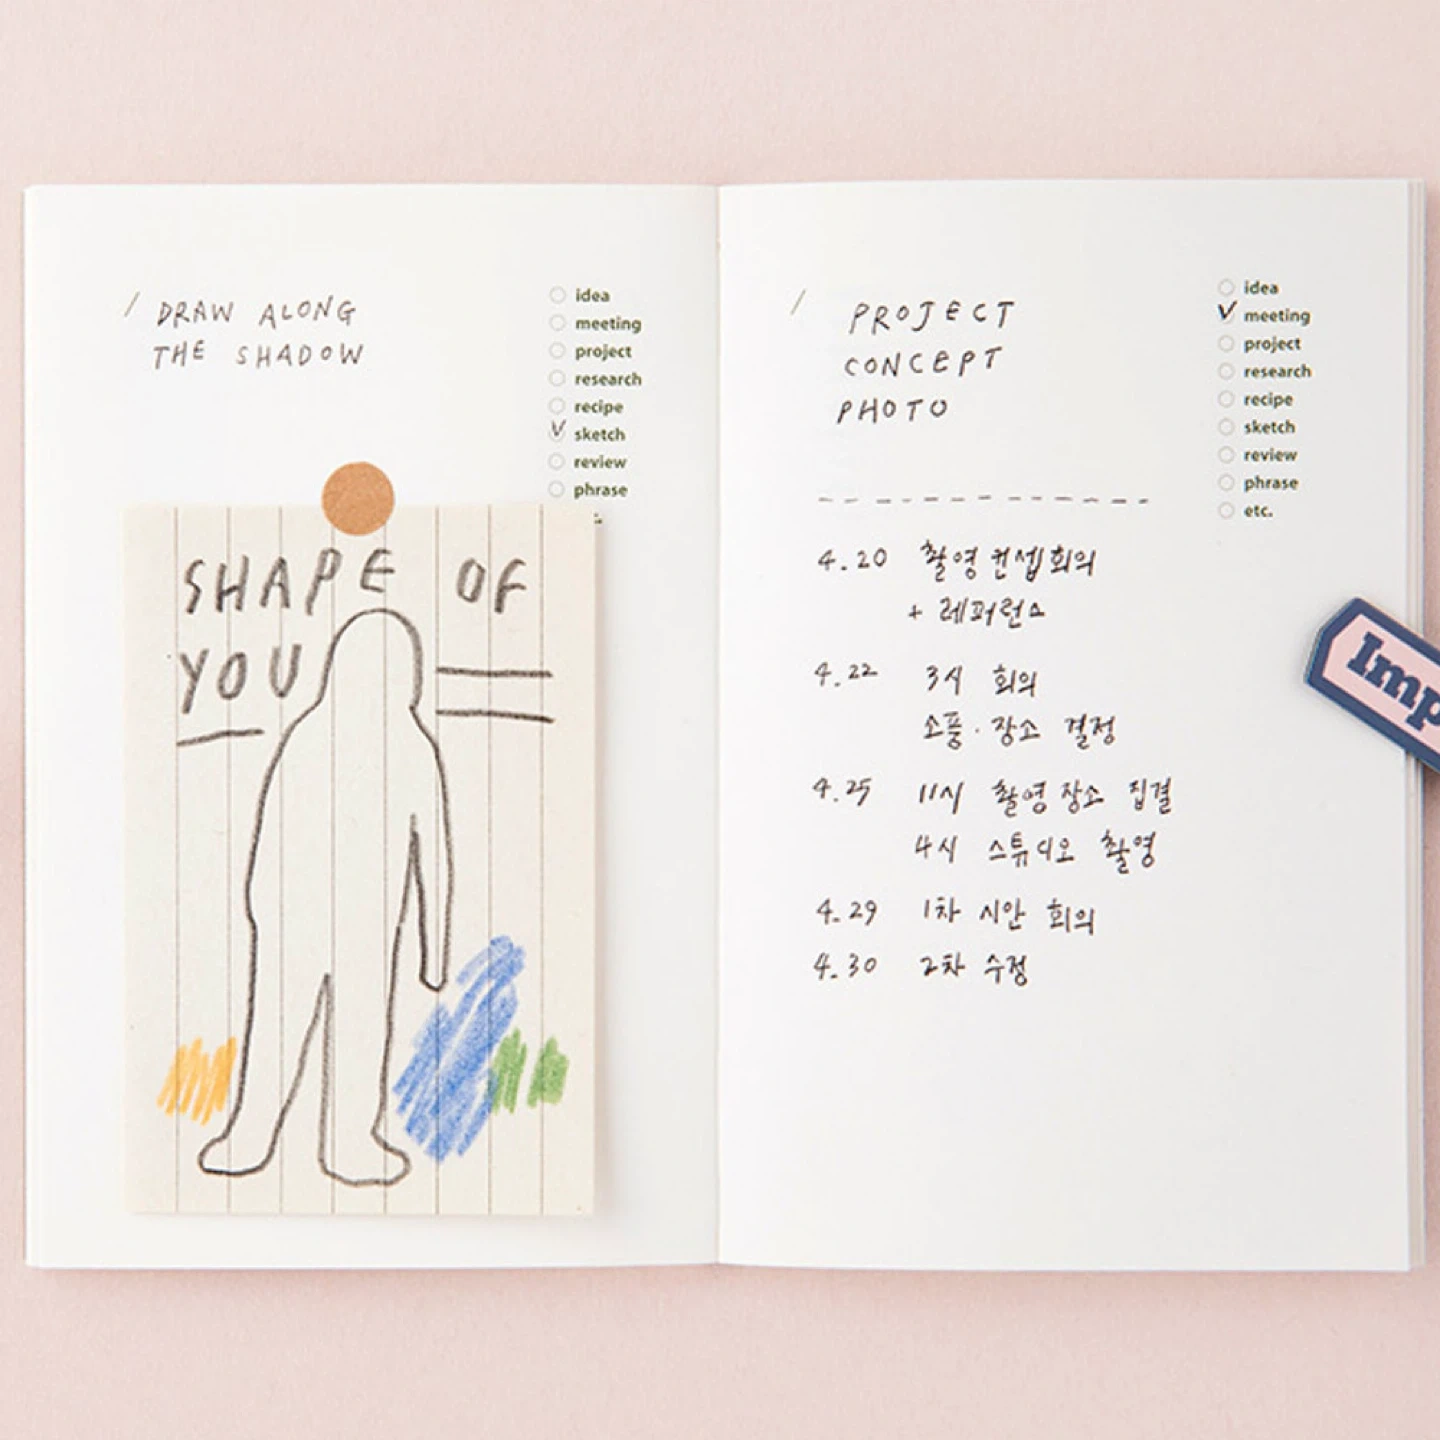 / DRAW ALONG
THE SHADOW
idea
meeting
project
research
recipe
sketch
review
phrase
SHAPE OF
YOU
/ PROJECT
CONCEPT
PHOTO
idea
meeting
project
research
recipe
sketch
review
phrase
etc.
4.20 촬영 컨셉회의
+ 레퍼런스
4.22 3시 회의
소풍·장소 결정
4.25 11시 촬영장소 집결
4시 스튜디오 촬영
4.29 1차 시안 회의
4.30 2차 수정
Imp